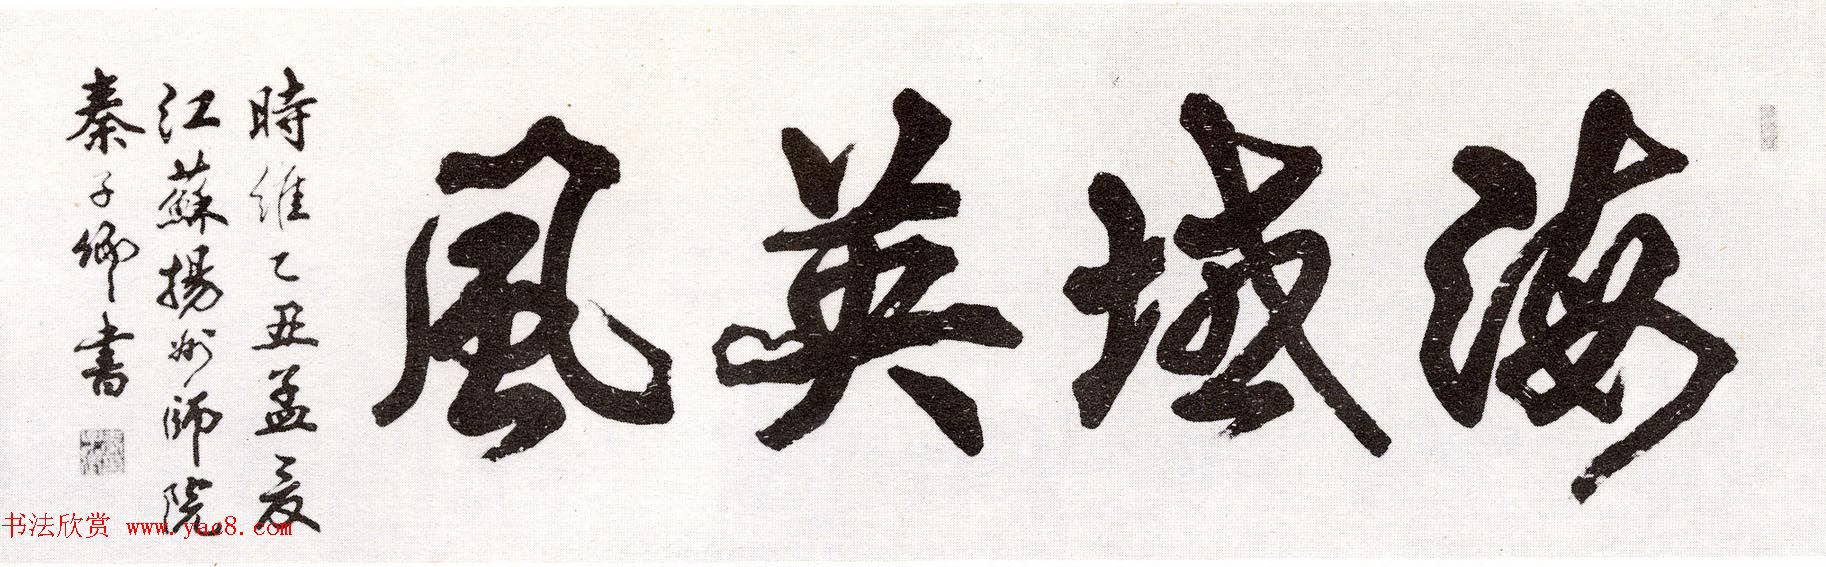 海域英風
時維乙丑孟夏
江蘇揚州師院
秦子卿書
书法欣赏 www.yac8.com